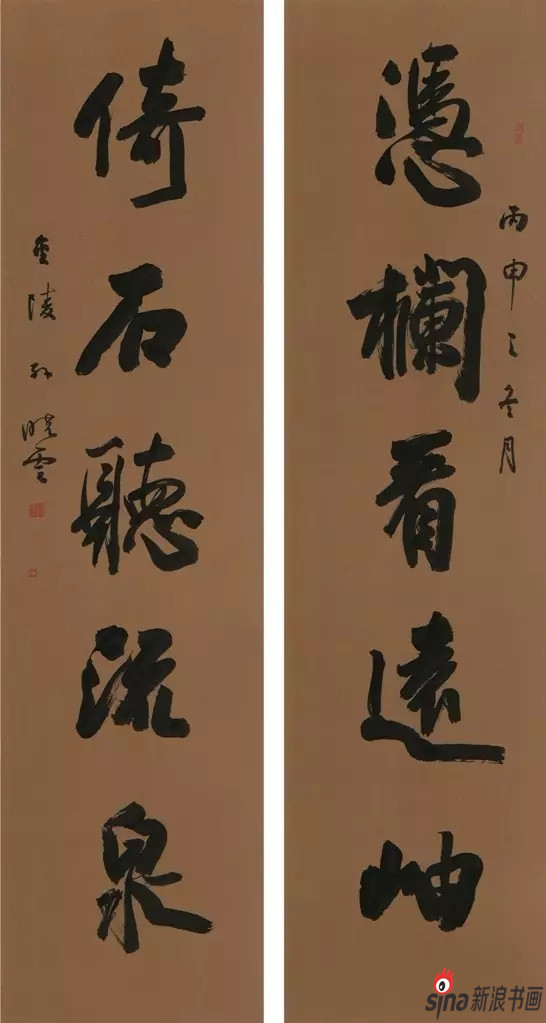 丙申之冬月
憑欄看遠岫
倚石聽流泉
金陵孙晓雲
sina新浪书画